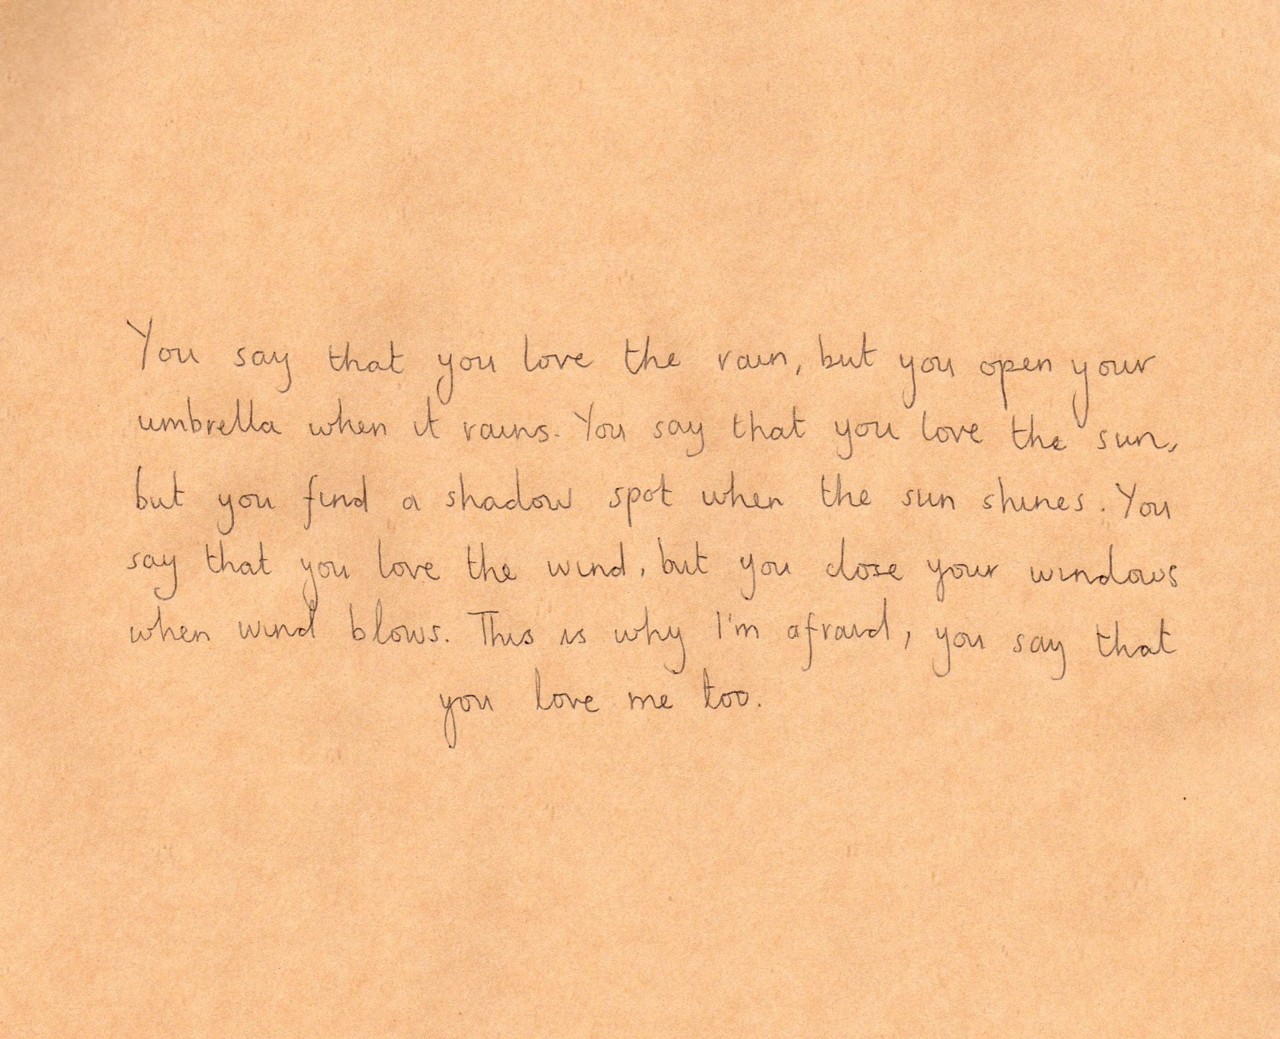 You say that you love the rain, but you open your
umbrella when it rains. You say that you love the sun,
but you find a shadow spot when the sun shines. You
say that you love the wind, but you close your windows
when wind blows. This is why I'm afraid, you say that
you love me too.